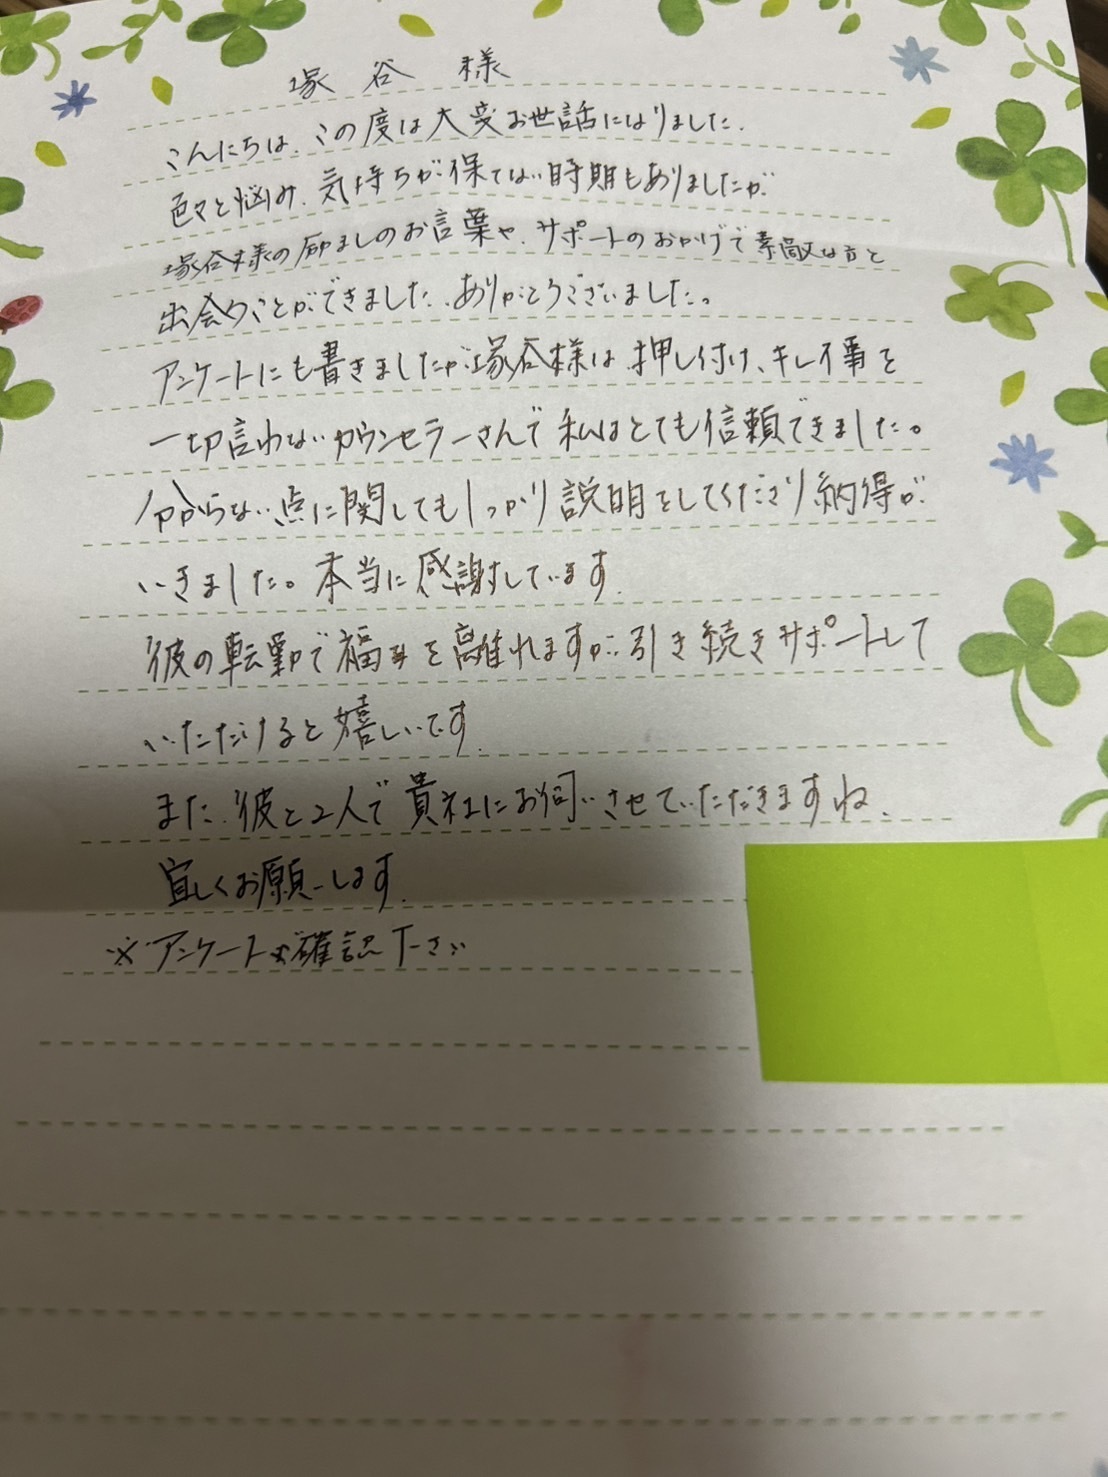 塚谷様
こんにちは、この度は大変お世話になりました、
色々と悩み、気持ちが保てない時期もありましたが
塚谷様の励ましのお言葉や、サポートのおかげで素敵な方と
出会うことができました、ありがとうございました。
アンケートにも書きましたが塚谷様は押し付け、キレイ事を
一切言わないカウンセラーさんで私はとても信頼できました。
分からない点に関してもしっかり説明をしてくださり納得が
いきました。本当に感謝しています
彼の転勤で福井を離れますが引き続きサポートして
いただけると嬉しいです
また、彼と2人で貴社にお伺いさせていただきますね、
宜しくお願いします
※アンケートご確認下さい